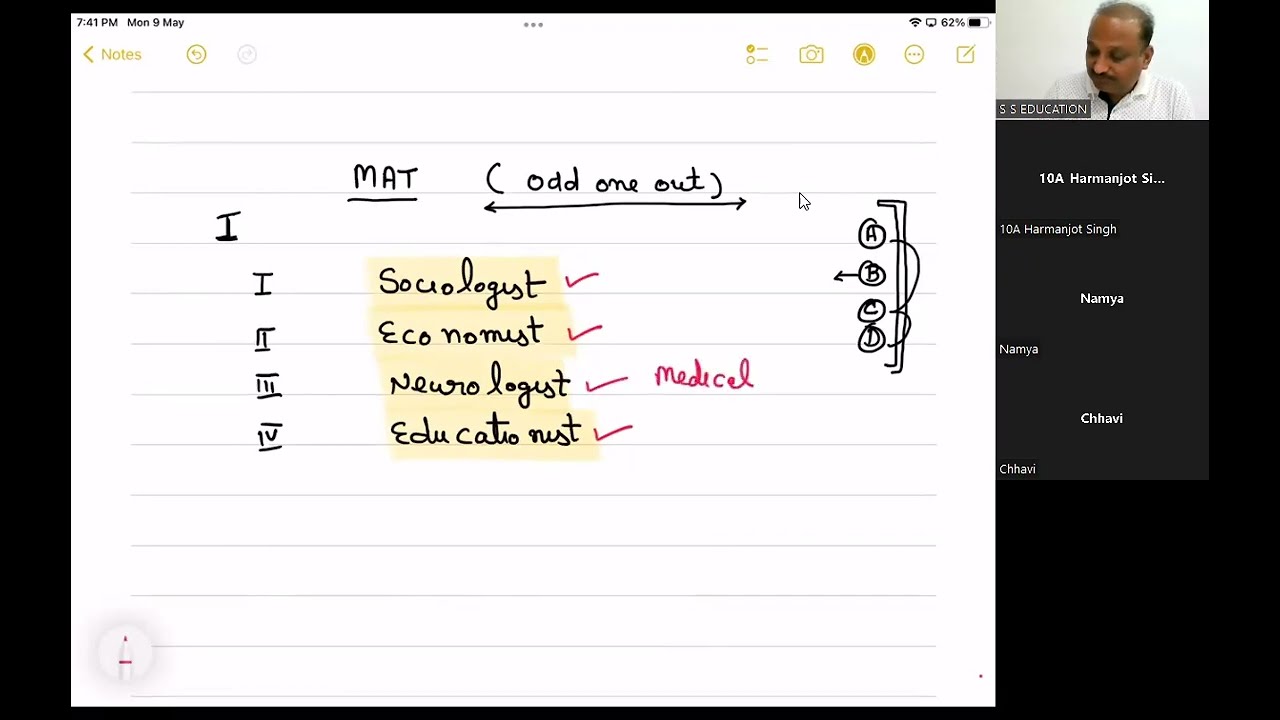 7:41 PM Mon 9 May
62%
Notes
S S EDUCATION
MAT ( odd one out )
10A Harmanjot Si...
10A Harmanjot Singh
I
A
I Sociologist
B
Namya
C
II Economist
D
Namya
III Neurologist Medical
IV Educationist
Chhavi
Chhavi